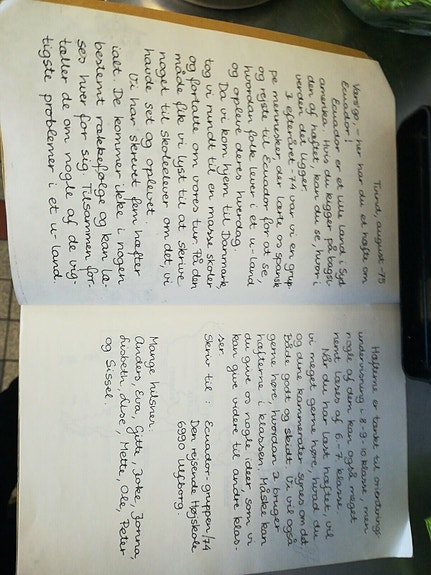 Tvind, august -75
Værs'go, - her har du et hæfte om
Ecuador.
Ecuador er et lille land i Syd
amerika. Hvis du kigger på bagsi
den af hæftet kan du se, hvor i
verden det ligger.
I efteråret -74 var vi en grup
pe mennesker, der lærte os spansk
og rejste til Ecuador for at se,
hvordan folk lever i et u-land
og opleve deres hverdag.
Da vi kom hjem til Danmark
tog vi rundt til en masse skoler
og fortalte om vores tur. På den
måde fik vi lyst til at skrive
noget til skoleelever om det, vi
havde set og oplevet.
Vi har skrevet fem hæfter
ialt. De kommer ikke i nogen
bestemt rækkefølge og kan læ-
ses hver for sig. Tilsammen for-
tæller de om nogle af de vig-
tigste problemer i et u-land.
Hæfterne er tænkt til orienterings-
undervisning i 8-9-10 klasse, men
nogle af dem kan også meget
nemt læses af 6-7 klasse.
Når du har læst hæftet vil
vi meget gerne høre, hvad du
og dine kammerater synes om det
Både godt og skidt. Vi vil også
gerne høre, hvordan I bruger
hæfterne i klassen. Måske kan
du give os nogle ideer, som vi
kan give videre til andre klas-
ser
Skriv til: Ecuador-gruppen/74
Den rejsende Højskole
6990 Ulfborg.
Mange hilsner:
Anders, Eva, Gitte, Jonna,
Lisbeth, Lise, Mette, Ole, Peter
og Sissel.